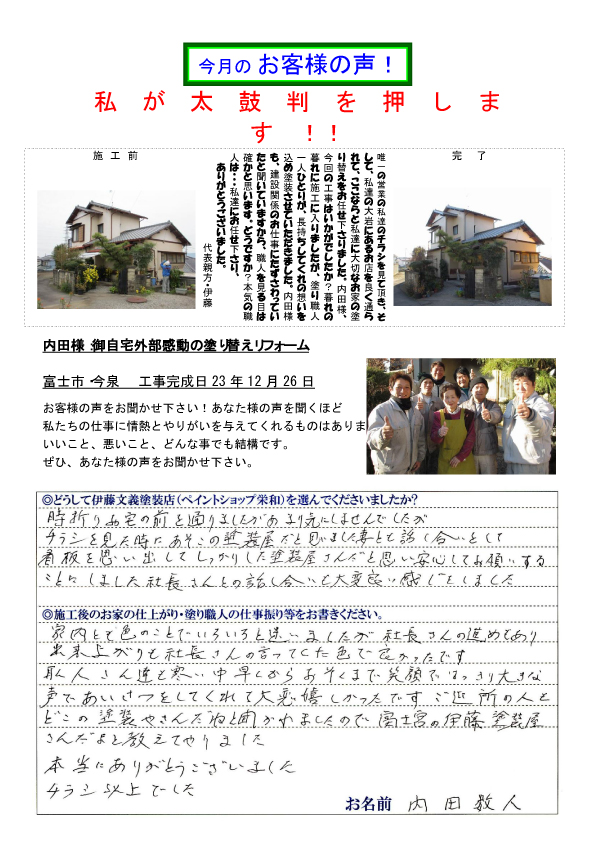 今月の お客様の声！
私が太鼓判を押しま
す！！
施工前
唯一の営業の私達のチラシを見て頂き、そ
して、私達の大岩にあるお店を良く通ら
れて、ここならと私達に大切なお家の塗
り替えをお任せ下さりました。内田様、
今回の工事はいかがでしたか？暮れの
暮れに施工に入りましたが、塗り職人
一人ひとりが、長持ちしてくれの想いを
込め塗装させていただきました。内田様
も、建設関係のお仕事にたずさわってい
たと聞いていますから、職人を見る目は
確かと思います。どうですか？本気の職
人は・・・私達にお任せ下さり、
ありがとうございました。
代表親方・伊藤
完了
内田様 御自宅外部感動の塗り替えリフォーム
富士市・今泉 工事完成日23年12月26日
お客様の声をお聞かせ下さい！あなた様の声を聞くほど
私たちの仕事に情熱とやりがいを与えてくれるものはありま
いいこと、悪いこと、どんな事でも結構です。
ぜひ、あなた様の声をお聞かせ下さい。
◎どうして伊藤文義塗装店（ペイントショップ栄和）を選んでくださいましたか？
時折りお宅の前を通りましたがあまり気にしませんでしたが
チラシを見た時にあそこの塗装屋だと思いました妻とも話し合いをして
看板を思い出してしっかりした塗装屋さんだと思い安心してお願いする
ことにしました社長さんとの話し合いも大変良い感じをしました
◎施工後のお家の仕上がり・塗り職人の仕事振り等をお書きください。
家内とも色のことでいろいろと迷いましたが社長さんの進めもあり
出来上がりも社長さんの言ってた色で良かったです
職人さん達も寒い中早くからおそくまで笑顔ではっきり大きな
声であいさつをしてくれて大変嬉しかったです ご近所の人も
どこの塗装やさんだねと聞かれましたので富士宮の伊藤塗装屋
さんだよと教えてやりました
本当にありがとうございました
チラシ以上でした
お名前 内田数人